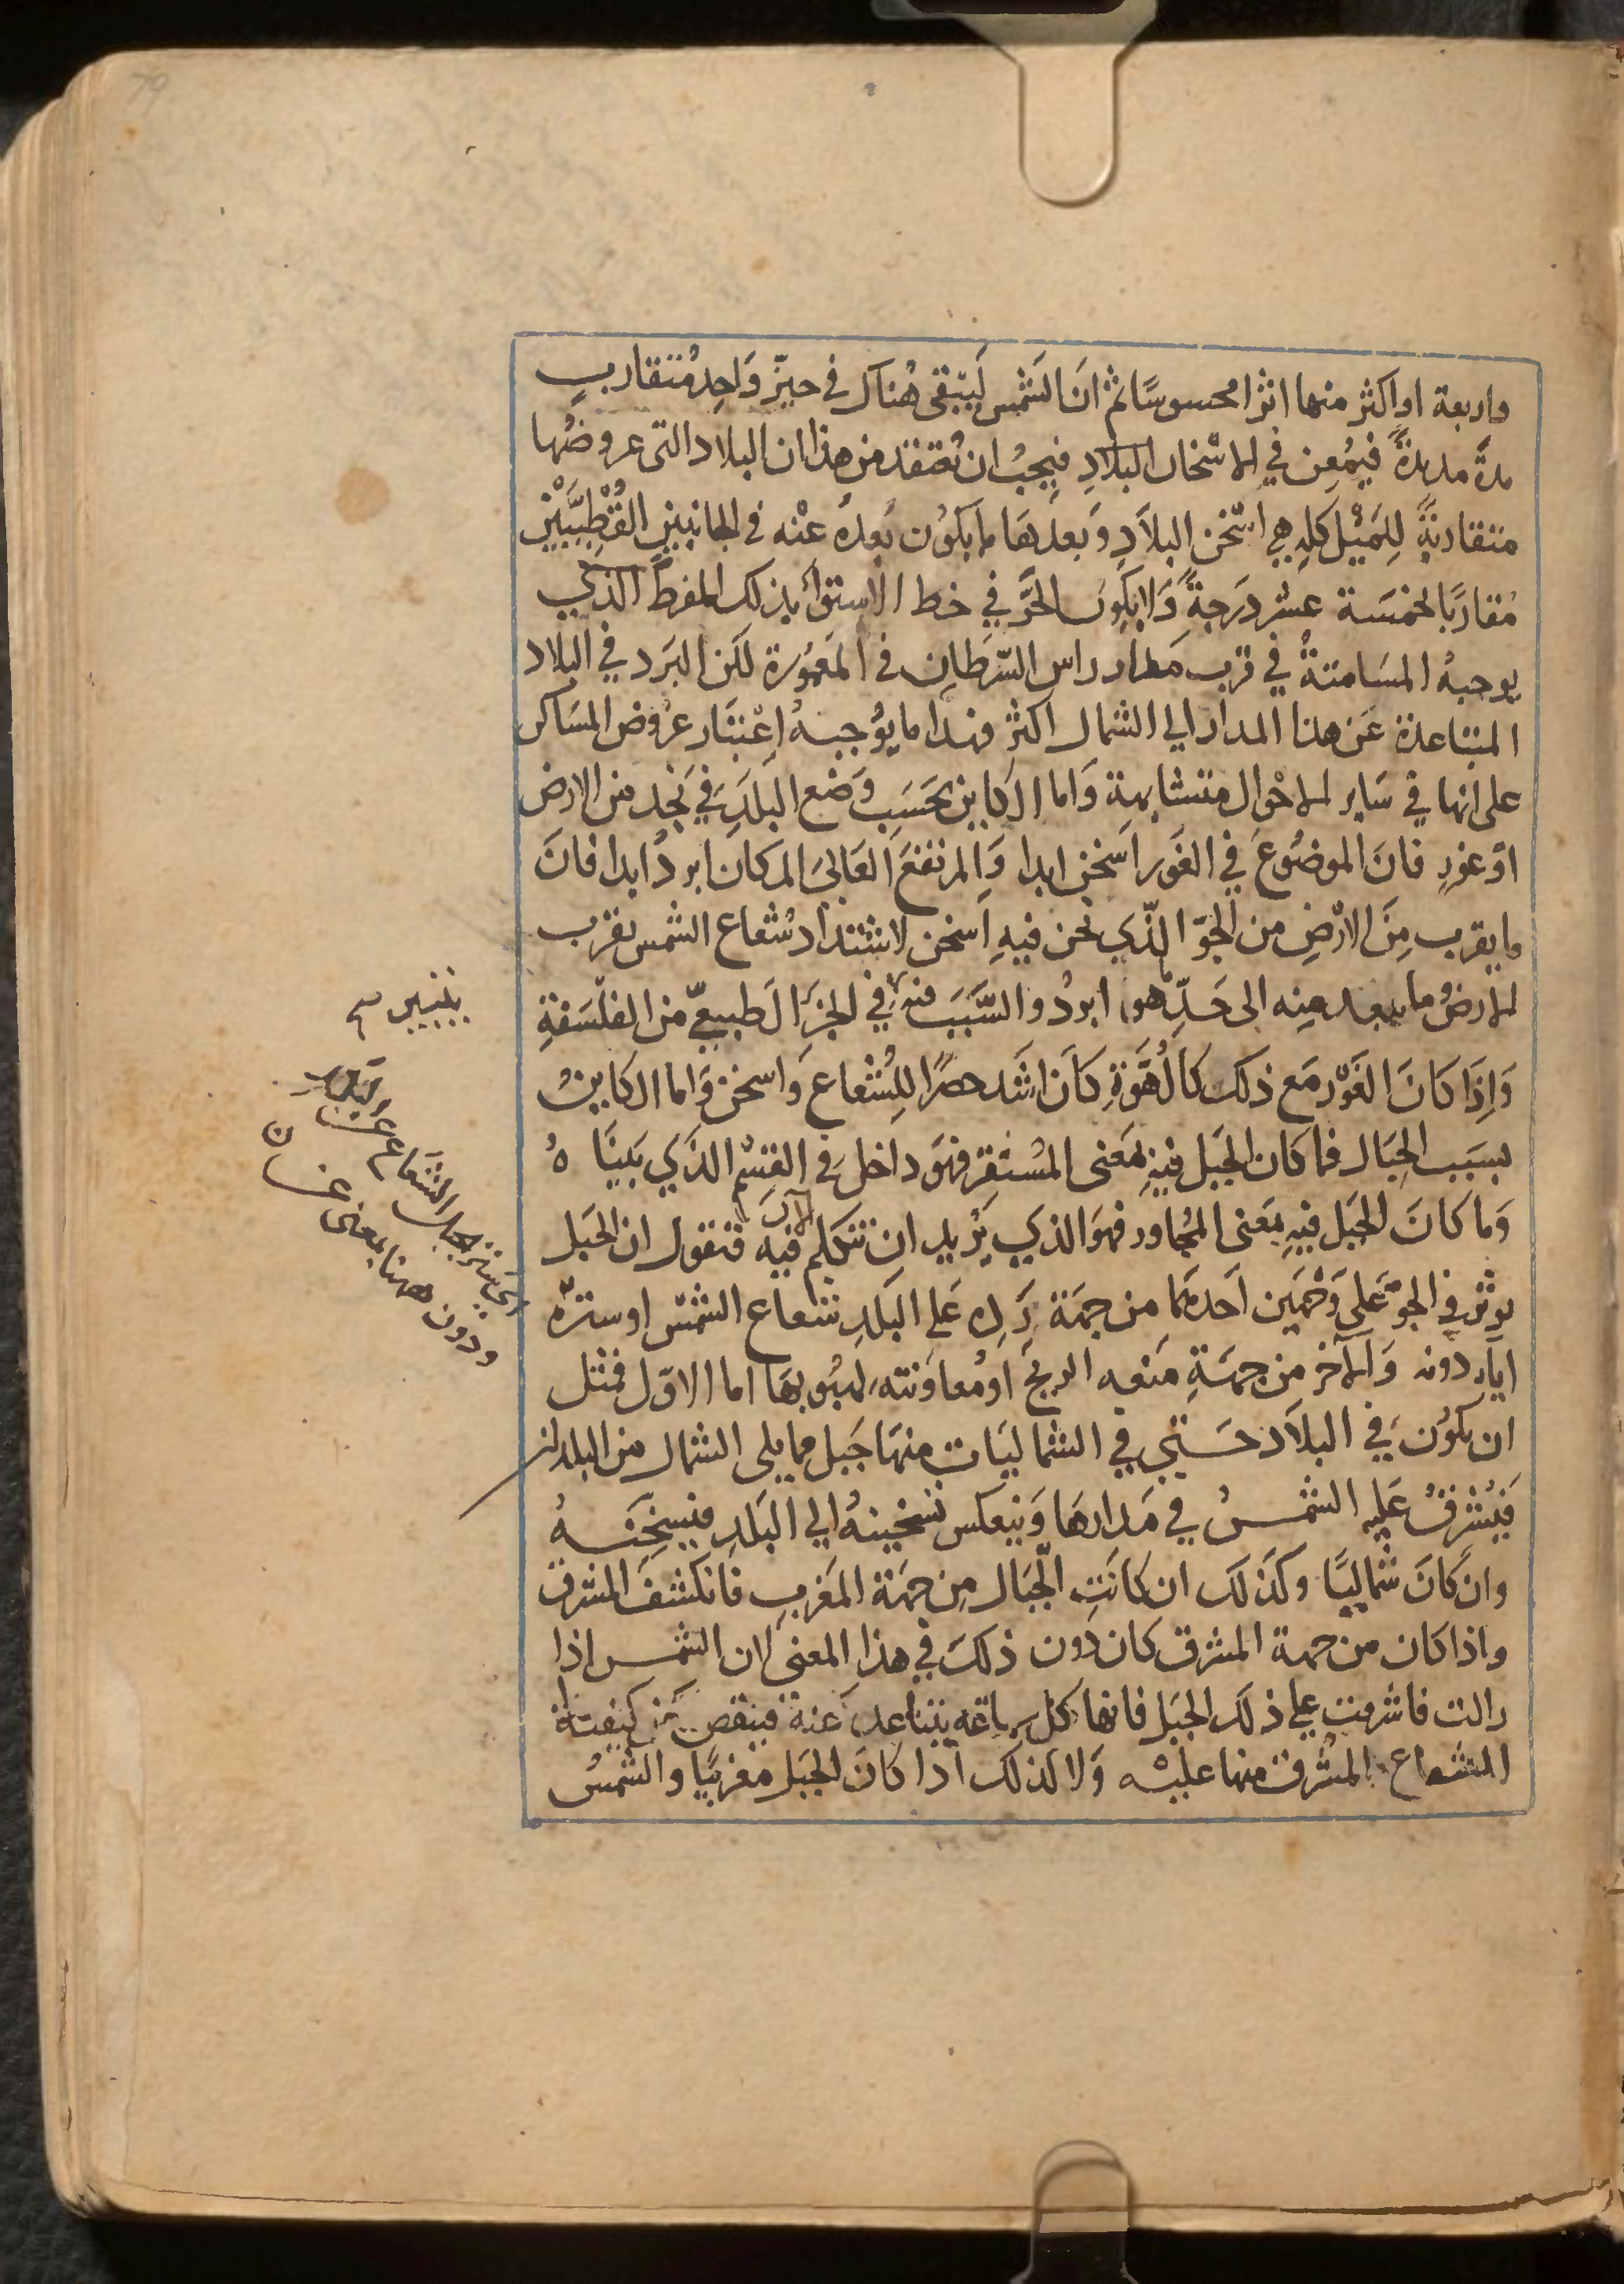 واربعة او اكثر منها اثرا محسوسًا ثم انَ الشمس لَيَبْقى هُناك في حيزّ وَاحِد مُتقاربٍ
مدةً مديدةً فيُمْعِن في الاسْخان البلادِ فيجبُ ان تُعتقد من هذا ان البلاد التى عروضُها
متقاربةً لِلمَيْل كلهِ هي اسْخن البلاَدِ وَبعدهَا ما يكوُن بُعدهُ عنْه في الجانبين القُطْبِيَّيْن
مُقاربًا لخمسَة عشر دَرَجةً وَلا يكون الحَرّ في خط الاستوآ بذلك المفرط الذي
يوجبهُ المسَامتةُ في قرب مدار راس السّرطان في المعمُورة لكن البَرد في البلاد
المتباعدة عَن هذا المدار الي الشمال اكثر فهذا ما يوُجبهُ اِعْتبَار عرُوض المسَاكن
على انها في سَاير الاحْوال متشابهة وَاما الكاين بحَسَبِ وَضْع البلَدِ في نجد من الارض
اوْ غورٍ فانَ الموضُوعَ في الغَور اَسْخن ابدا وَالمرتفعَ العَالىَ المكان ابردُ ابدا فانَ
ما يقرب مِنَ الارْضِ من الجوّ الذّي نحن فيهِ اَسخن لاشتدَاد شُعاع الشمس بقرب
الارض وما يبعد منه الى حَدِّ ما هو ابردُ والسَّبَبَ فيه في الجزَء الطبيعيّ من الفلْسَفةِ
وَاِذَا كانَ الغَوْر مَع ذلك كالهُوّةِ كانَ اشَدّ حصرًا لِلشعاع وَاسخن وَاما الكاينُ
بسَبَب الجِبَال فما كان الجَبل فيهِ بمَعنى المُستَقِرّ فهوَ داخل في القسْم الذَي بَيناهُ
وَما كانَ الجبَل فيهِ بمَعنى المُجاور فهوَ الذي نُريد ان نتكلم الآن فيه فنقول ان الجبَل
يوثر في الجوّ عَلي وَجْهَين اَحدهُما من جهَة رَدّه عَلي البَلدِ شعاع الشمسْ او ستره
اياه دونه وَالآخر من جهَةِ مَنعه الريحَ اوْ مُعاوَنته لهبُوبهَا اما الاوّل فمثل
ان يكوُنَ في البلاَد حَتي في الشماليَات منهَا جَبل مما يلى الشمال من البلد
فيُشرقُ عَليه الشمسُ في مَدارهَا وَينعكس تسْخينهُ الي البَلدِ فيسخِنهُ
وان كانَ شماليًا وكذلك ان كانَتِ الجبَال مِن جهَة المَغربِ فانكشفَ المشرق
واذا كان من جهة المشرق كان دُون ذلكَ في هذا المعني لان الشمس اذا
زالت فاشرقت علي ذلك الجبَل فانها كل ساعَة يتباعَد عَنهُ فينقص من كيفية
الشعاع المُشرق منها عليْه وَلا كذلك اذا كانَ الجبَل مغربيًا والشمسُ
ودون ههنا بمعنى عند